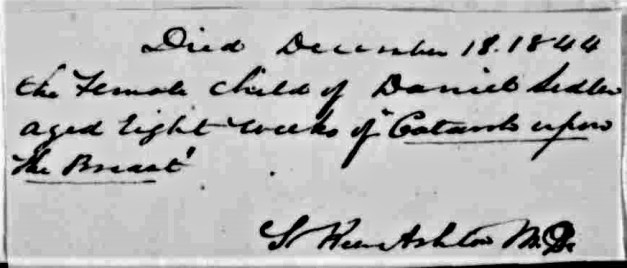 Died December 18. 1844
the Female child of Daniel Sedler
aged Eight weeks of "Catarrh upon
The Breast"
Ashton M. D.